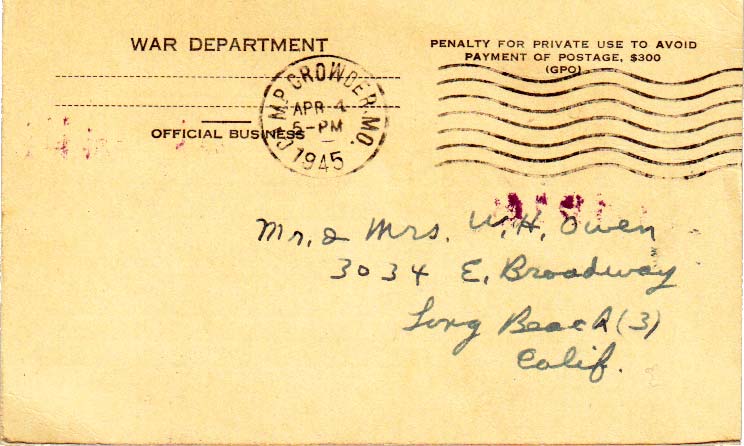 WAR DEPARTMENT
OFFICIAL BUSINESS
CAMP CROWDER, MO.
APR 4
5-PM
1945
PENALTY FOR PRIVATE USE TO AVOID
PAYMENT OF POSTAGE, $300
(GPO)
Mr. & Mrs. W. H. Owen
3034 E. Broadway
Long Beach (3)
Calif.